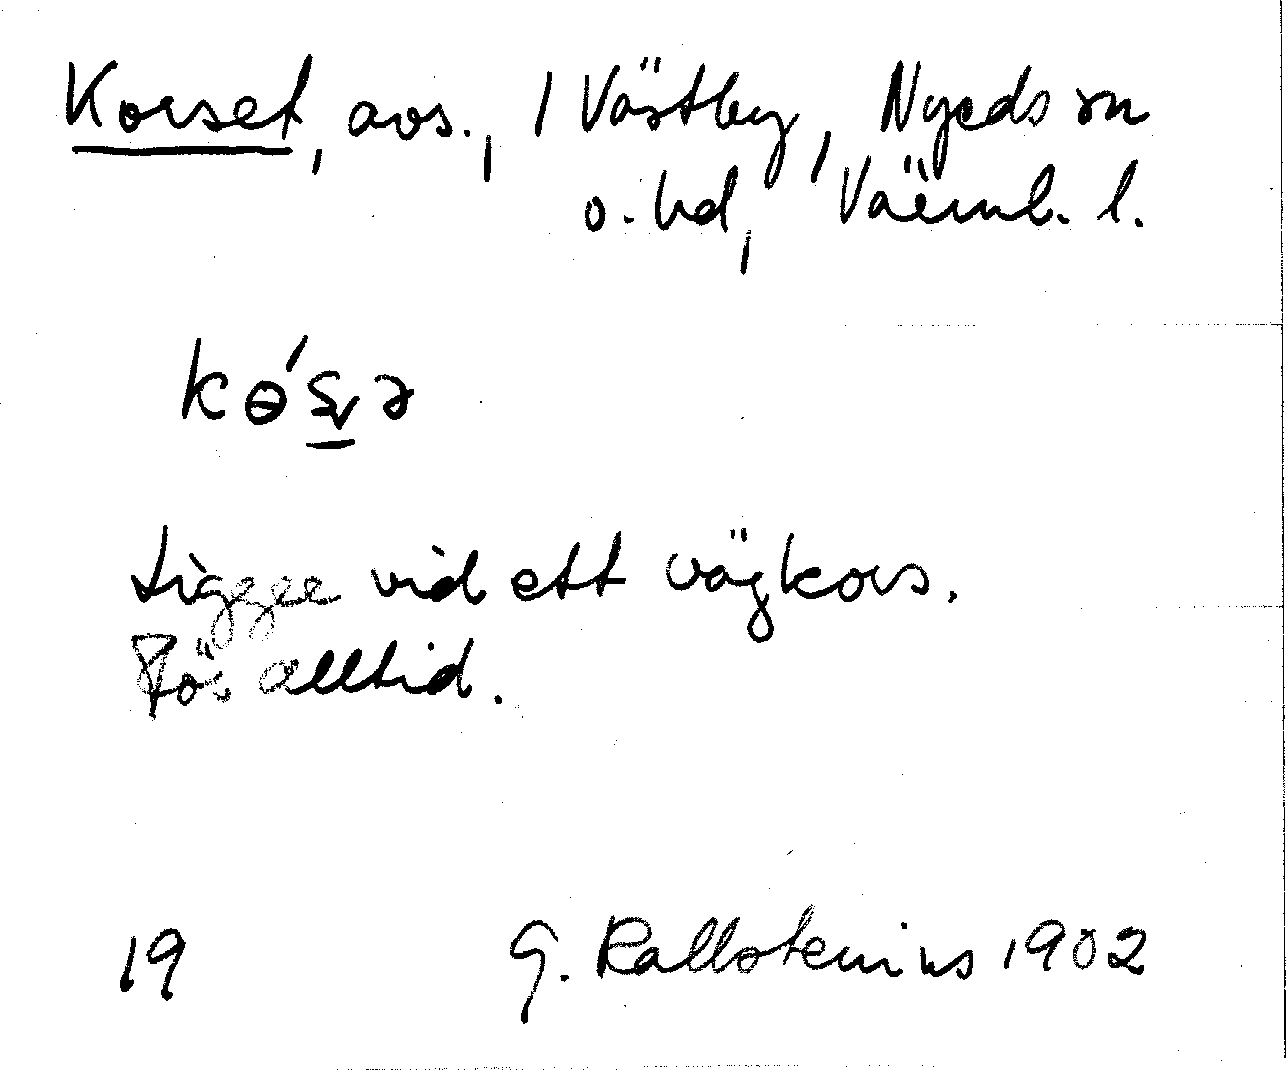 Korset, avs., 1 Västby, Nyeds sn
o. hd, Värml. l.
kɵ́s̱ə
Ligger vid ett vägkors.
Fös alltid.
19 G. Kallstenius 1902